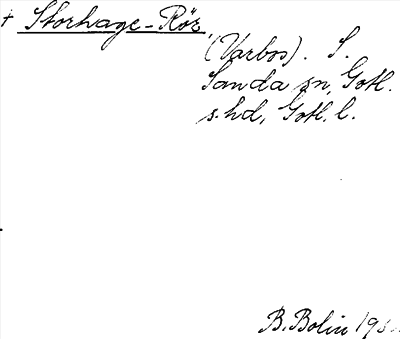 † Storhage-Rör
(Varbos). S.
Sanda sn, Gotl.
s. hd, Gotl. l.
B. Bolin